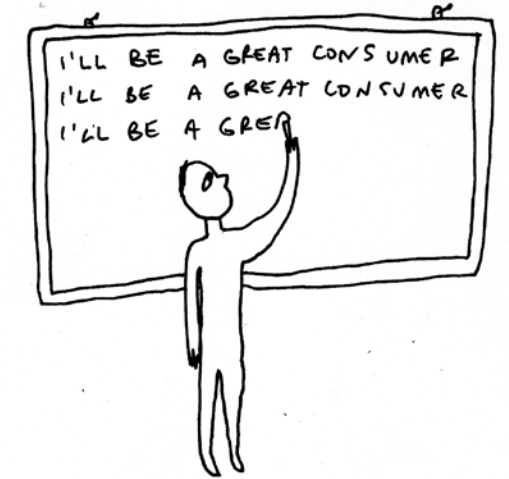 I'LL BE A GREAT CONSUMER
I'LL BE A GREAT CONSUMER
I'LL BE A GREA